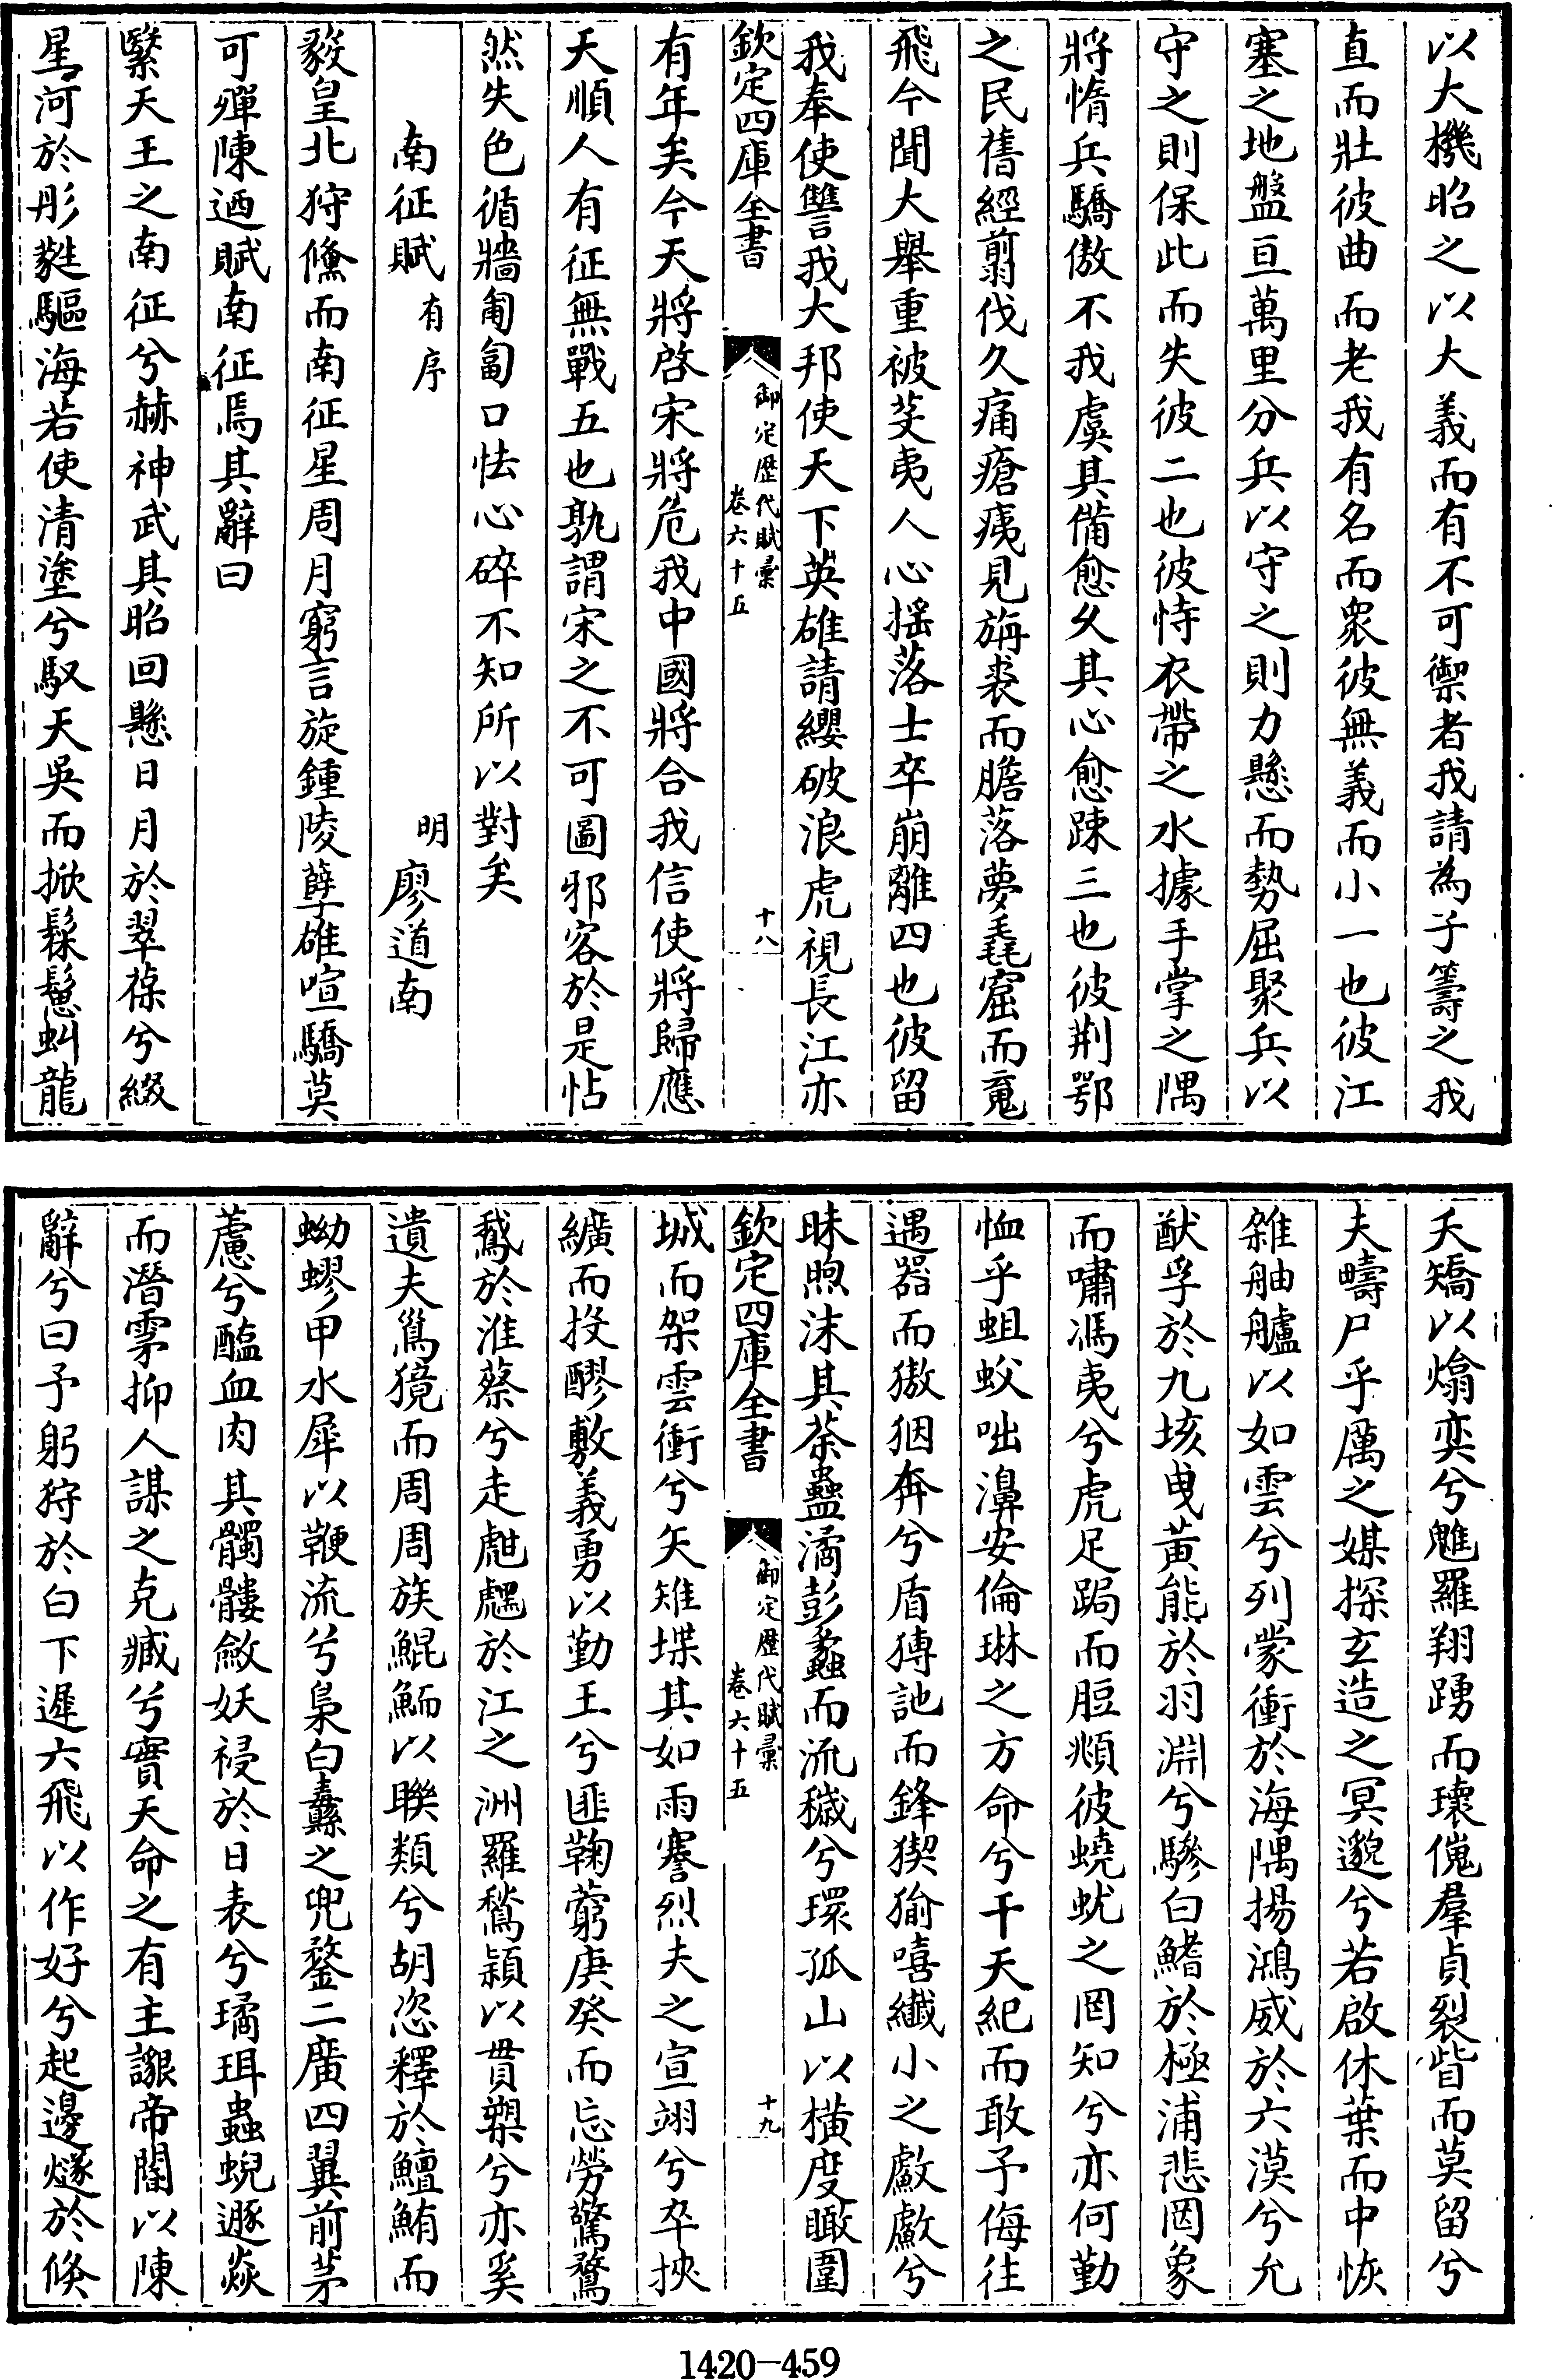 以大機昭之以大義而有不可禦者我請為子籌之我
直而壯彼曲而老我有名而衆彼無義而小一也彼江
塞之地盤亘萬里分兵以守之則力懸而勢屈聚兵以
守之則保此而失彼二也彼恃衣帶之水據手掌之隅
將惰兵驕傲不我虞其備愈久其心愈踈三也彼荆鄂
之民舊經翦伐久痛瘡痍見旃裘而膽落夢毳窟而䰟
飛今聞大舉重被芟夷人心揺落士卒崩離四也彼留
我奉使讐我大邦使天下英雄請纓破浪虎視長江亦
欽定四庫全書
御定歴代賦彙
卷六十五
十八
有年矣今天將啓宋將危我中國將合我信使將歸應
天順人有征無戰五也孰謂宋之不可圖邪客於是怗
然失色循牆匍匐口怯心碎不知所以對矣
南征賦有序
明廖道南
毅皇北狩儵而南征星周月窮言旋鍾陵孽雄喧驕莫
可殫陳廼賦南征焉其辭曰
繄天王之南征兮赫神武其昭回懸日月於翠葆兮綴
星河於彤蕤驅海若使清塗兮馭天吳而掀鬃鬛虯龍
夭矯以熻奕兮魋羅翔踴而瓌傀羣貞裂眥而莫留兮
夫疇尸乎厲之媒探玄造之冥邈兮若啟休葉而中恢
雜舳艫以如雲兮列蒙衝於海隅揚鴻威於六漠兮允
猷孚於九垓曳黃熊於羽淵兮驂白鰭於極浦悲罔象
而嘯馮夷兮虎足跼而脰頫彼蟯蚘之罔知兮亦何勤
恤乎蛆蛟咄濞安倫琳之方命兮干天紀而敢予侮往
遇器而獓狪奔兮盾猼訑而鋒猰㺄嘻纖小之獻獻兮
昧煦沫其荼蠱潏彭蠡而流穢兮環孤山以橫度瞰圍
欽定四庫全書
御定歴代賦彙
卷六十五
十九
城而架雲衝兮矢雉堞其如雨謇烈夫之宣翊兮卒挾
纊而投醪敷義勇以勤王兮匪鞠藭庚癸而忘勞驚鶩
鵞於淮蔡兮走虪䖑於江之洲羅鶖頴以貫槊兮亦奚
遺夫鳭獍而周周族鯤鮞以聯類兮胡恣釋於鱣鮪而
蚴蟉甲水犀以鞭流兮梟白纛之兜鍪二廣四翼前茅
藘兮醢血肉其髑髏斂妖祲於日表兮璚珥蟲蜺遯焱
而潛霿抑人謀之克臧兮實天命之有主謖帝閽以陳
辭兮曰予躬狩於白下遲六飛以作好兮起邊燧於倏
1420-459